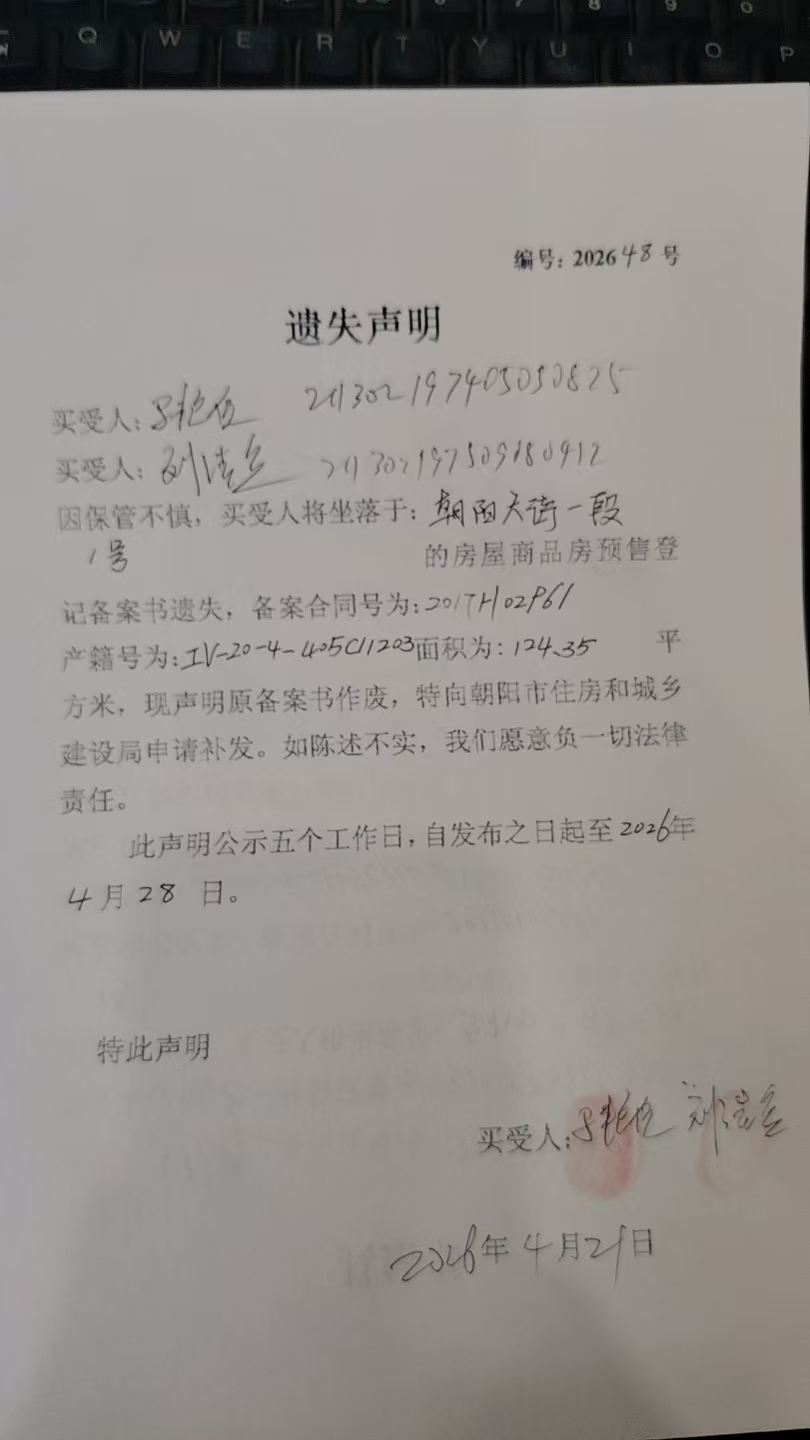 Q W E R T Y U I O P
编号：202648号
遗失声明
买受人： 211302197405050825
买受人：刘 211302197509180912
因保管不慎，买受人将坐落于：朝阳大街一段
1号 的房屋商品房预售登
记备案书遗失，备案合同号为：2017H02961
产籍号为：IV-20-4-405C11203面积为：124.35 平
方米，现声明原备案书作废，特向朝阳市住房和城乡
建设局申请补发。如陈述不实，我们愿意负一切法律
责任。
此声明公示五个工作日，自发布之日起至2026年
4月28日。
特此声明
买受人： 刘
2026年4月21日